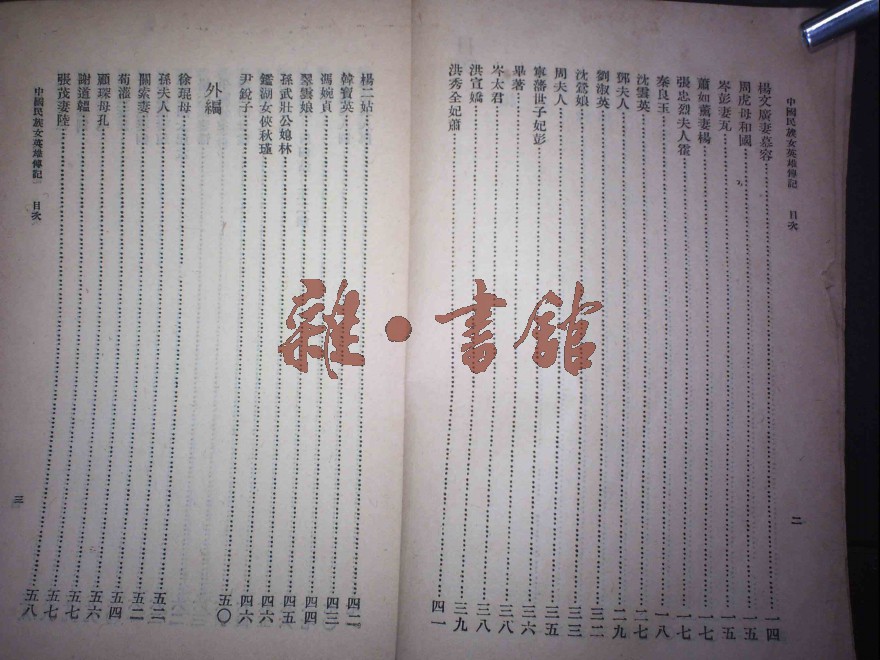 中國民族女英雄傳記 目次
楊文廣妻慕容……一四
周虎母和國……一五
岑彭妻瓦……一五
蕭如薰妻楊……一七
張忠烈夫人霍……一七
秦良玉……一八
沈雲英……二七
鄧夫人……二九
劉淑英……三二
沈鸞娘……三三
周夫人……三五
寧藩世子妃彭……三六
畢著……三八
岑太君……三八
洪宣嬌……三九
洪秀全妃蕭……四一
二
楊二姑……四二
韓寶英……四三
馮婉貞……四四
翠雲娘……四五
孫武壯公媳林……四六
鑑湖女俠秋瑾……四六
尹銳子……五〇
外編
徐琨母……五二
孫夫人……五二
關索妻……五四
荀灌……五六
顧琛母孔……五七
謝道韞……五七
張茂妻陸……五八
中國民族女英雄傳記 目次
三
雜·書館